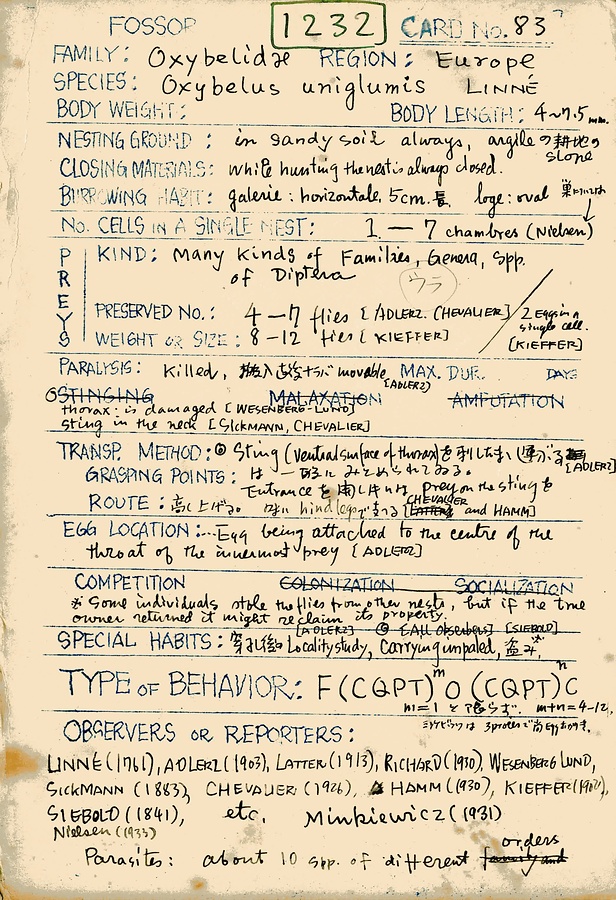 FOSSOR 1232 CARD No. 83
FAMILY: Oxybelidæ REGION: Europe
SPECIES: Oxybelus uniglumis LINNÉ
BODY WEIGHT: BODY LENGTH: 4~7.5 mm.
NESTING GROUND: in sandy soil always, argile の耕地の
slope
CLOSING MATERIALS: while hunting the nest is always closed.
BURROWING HABIT: galerie: horizontale, 5cm.長 loge: oval
No. CELLS IN A SINGLE NEST: 1 — 7 chambres (Nielsen)
PREYS
KIND: Many Kinds of Families, Genera, Spp.
of Diptera
ウラ
PRESERVED No.: 4—7 flies [ADLERZ. CHEVALIER] / 2 Eggs in a
single cell.
WEIGHT OR SIZE: 8-12 flies [KIEFFER] [KIEFFER]
PARALYSIS: Killed, movable MAX. DUR. DAYS
[ADLERZ]
STINGING MALAXATION AMPUTATION
thorax: is damaged [WESENBERG-LUND]
sting in the neck [SICKMANN, CHEVALIER]
TRANSP. METHOD: Sting (ventral surface of thorax)
[ADLERZ]
GRASPING POINTS: は 一般に みとめられてゐる。
Entrance を prey on the sting を
ROUTE: 高し上げる hind legs CHEVALIER
and HAMM]
EGG LOCATION: Egg being attached to the centre of the
throat of the innermost prey [ADLERZ]
COMPETITION COLONIZATION SOCIALIZATION
※ Some individuals stole the flies from other nests, but if the true
owner returned it might reclaim its property.
[ADLERZ] [All Observers] [SIEBOLD]
SPECIAL HABITS: 穿孔後の Locality study, Carrying impaled, 盗み※
TYPE OF BEHAVIOR: F(CQPT)ᵐO(CQPT)ⁿC
m=1 と限らず. m+n=4-12,
OBSERVERS OR REPORTERS:
LINNÉ (1761), ADLERZ (1903), LATTER (1913), RICHARD (1930), WESENBERG LUND,
SICKMANN (1883), CHEVALIER (1926), HAMM (1930), KIEFFER
SIEBOLD (1841), etc. Minkiewicz (1931)
Nielsen (1933)
orders
Parasites: about 10 spp. of different family and